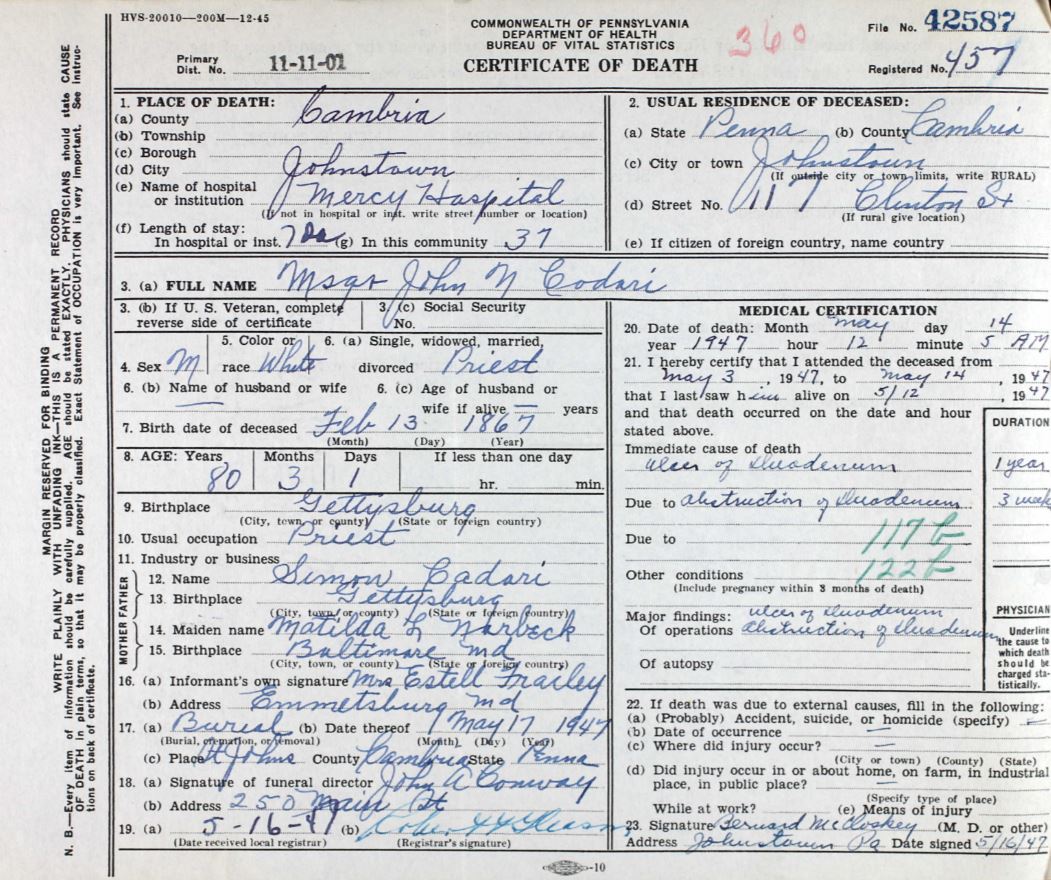 HVS-20010—200M—12-45
COMMONWEALTH OF PENNSYLVANIA
DEPARTMENT OF HEALTH
BUREAU OF VITAL STATISTICS
CERTIFICATE OF DEATH
360
File No. 42587
Registered No. 457
Primary Dist. No. 11-11-01
1. PLACE OF DEATH:
(a) County Cambria
(b) Township
(c) Borough
(d) City Johnstown
(e) Name of hospital or institution Mercy Hospital
(If not in hospital or inst. write street number or location)
(f) Length of stay:
In hospital or inst. 7 Da (g) In this community 37
2. USUAL RESIDENCE OF DECEASED:
(a) State Penna (b) County Cambria
(c) City or town Johnstown
(If outside city or town limits, write RURAL)
(d) Street No. 117 Clinton St
(If rural give location)
(e) If citizen of foreign country, name country
3. (a) FULL NAME Msgr John N Codori
3. (b) If U. S. Veteran, complete reverse side of certificate
3. (c) Social Security No.
4. Sex M
5. Color or race White
6. (a) Single, widowed, married, divorced Priest
6. (b) Name of husband or wife —
6. (c) Age of husband or wife if alive — years
7. Birth date of deceased Feb 13 1867
(Month) (Day) (Year)
8. AGE: Years Months Days If less than one day
80 3 1 hr. min.
9. Birthplace Gettysburg
(City, town, or county) (State or foreign country)
10. Usual occupation Priest
11. Industry or business
FATHER
12. Name Simon Codori
13. Birthplace Gettysburg
(City, town, or county) (State or foreign country)
MOTHER
14. Maiden name Matilda L Norbeck
15. Birthplace Baltimore Md
(City, town, or county) (State or foreign country)
16. (a) Informant's own signature Mrs Estell Frailey
(b) Address Emmetsburg Md
17. (a) Burial (b) Date thereof May 17 1947
(Burial, cremation, or removal) (Month) (Day) (Year)
(c) Place St Johns County Cambria State Penna
18. (a) Signature of funeral director John A Conway
(b) Address 250 Main St
19. (a) 5-16-47 (b)
(Date received local registrar) (Registrar's signature)
MEDICAL CERTIFICATION
20. Date of death: Month May day 14
year 1947 hour 12 minute 5 AM
21. I hereby certify that I attended the deceased from
May 3, 1947, to May 14, 1947
that I last saw him alive on 5/12, 1947
and that death occurred on the date and hour
stated above.
DURATION
Immediate cause of death
ulcer of duodenum 1 year
Due to obstruction of duodenum 3 week
Due to 117 b
Other conditions 122 b
(Include pregnancy within 3 months of death)
Major findings: ulcer of duodenum
Of operations obstruction of duodenum
Of autopsy
PHYSICIAN
Underline
the cause to
which death
should be
charged sta-
tistically.
22. If death was due to external causes, fill in the following:
(a) (Probably) Accident, suicide, or homicide (specify) —
(b) Date of occurrence —
(c) Where did injury occur? —
(City or town) (County) (State)
(d) Did injury occur in or about home, on farm, in industrial
place, in public place? —
(Specify type of place)
While at work? (e) Means of injury
23. Signature Bernard McCloskey (M. D. or other)
Address Johnstown Pa Date signed 5/16/47
MARGIN RESERVED FOR BINDING
WRITE PLAINLY WITH UNFADING INK—THIS IS A PERMANENT RECORD
N. B.—Every item of information should be carefully supplied. AGE should be stated EXACTLY. PHYSICIANS should state CAUSE
OF DEATH in plain terms, so that it may be properly classified. Exact Statement of OCCUPATION is very important. See instruc-
tions on back of certificate.
-10